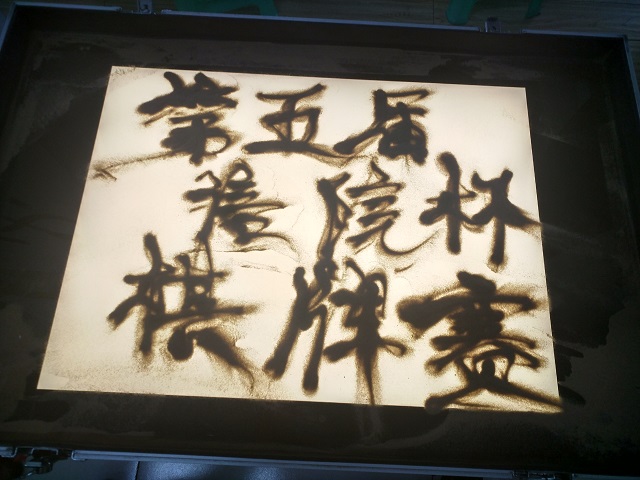 第五届
院杯
棋牌赛